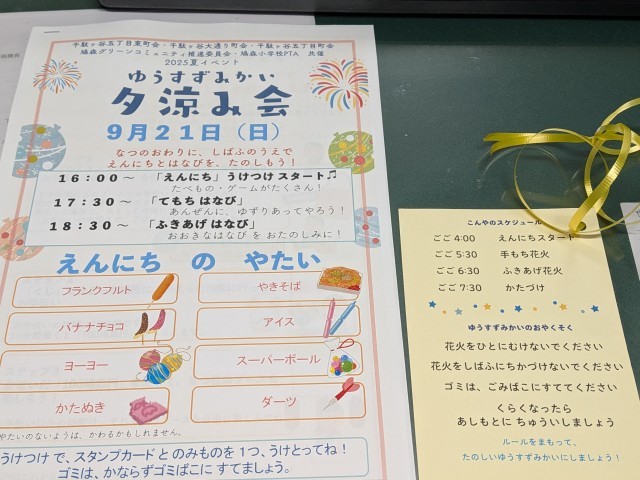 千駄ヶ谷五丁目東町会・千駄ヶ谷大通り町会・千駄ヶ谷五丁目町会
鳩森グリーンコミュニティ推進委員会・鳩森小学校PTA 共催
2025夏イベント
ゆうすずみかい
夕涼み会
9月21日（日）
なつのおわりに、しばふのうえで
えんにちとはなびを、たのしもう！
16：00～ 「えんにち」うけつけスタート♫
たべもの・ゲームがたくさん！
17：30～ 「てもちはなび」
あんぜんに、ゆずりあってやろう！
18：30～ 「ふきあげはなび」
おおきなはなびを おたのしみに！
えんにち の やたい
フランクフルト
やきそば
バナナチョコ
アイス
ヨーヨー
スーパーボール
かたぬき
ダーツ
やたいのないようは、かわるかもしれません。
うけつけで、スタンプカードとのみものを1つ、うけとってね！
ゴミは、かならずゴミばこに すてましょう。
こんやのスケジュール
ごご 4:00 えんにちスタート
ごご 5:30 手もち花火
ごご 6:30 ふきあげ花火
ごご 7:30 かたづけ
ゆうすずみかいのおやくそく
花火をひとにむけないでください
花火をしばふにちかづけないでください
ゴミは、ごみばこにすててください
くらくなったら
あしもとに ちゅういしましょう
ルールをまもって、
たのしいゆうすずみかいにしましょう！